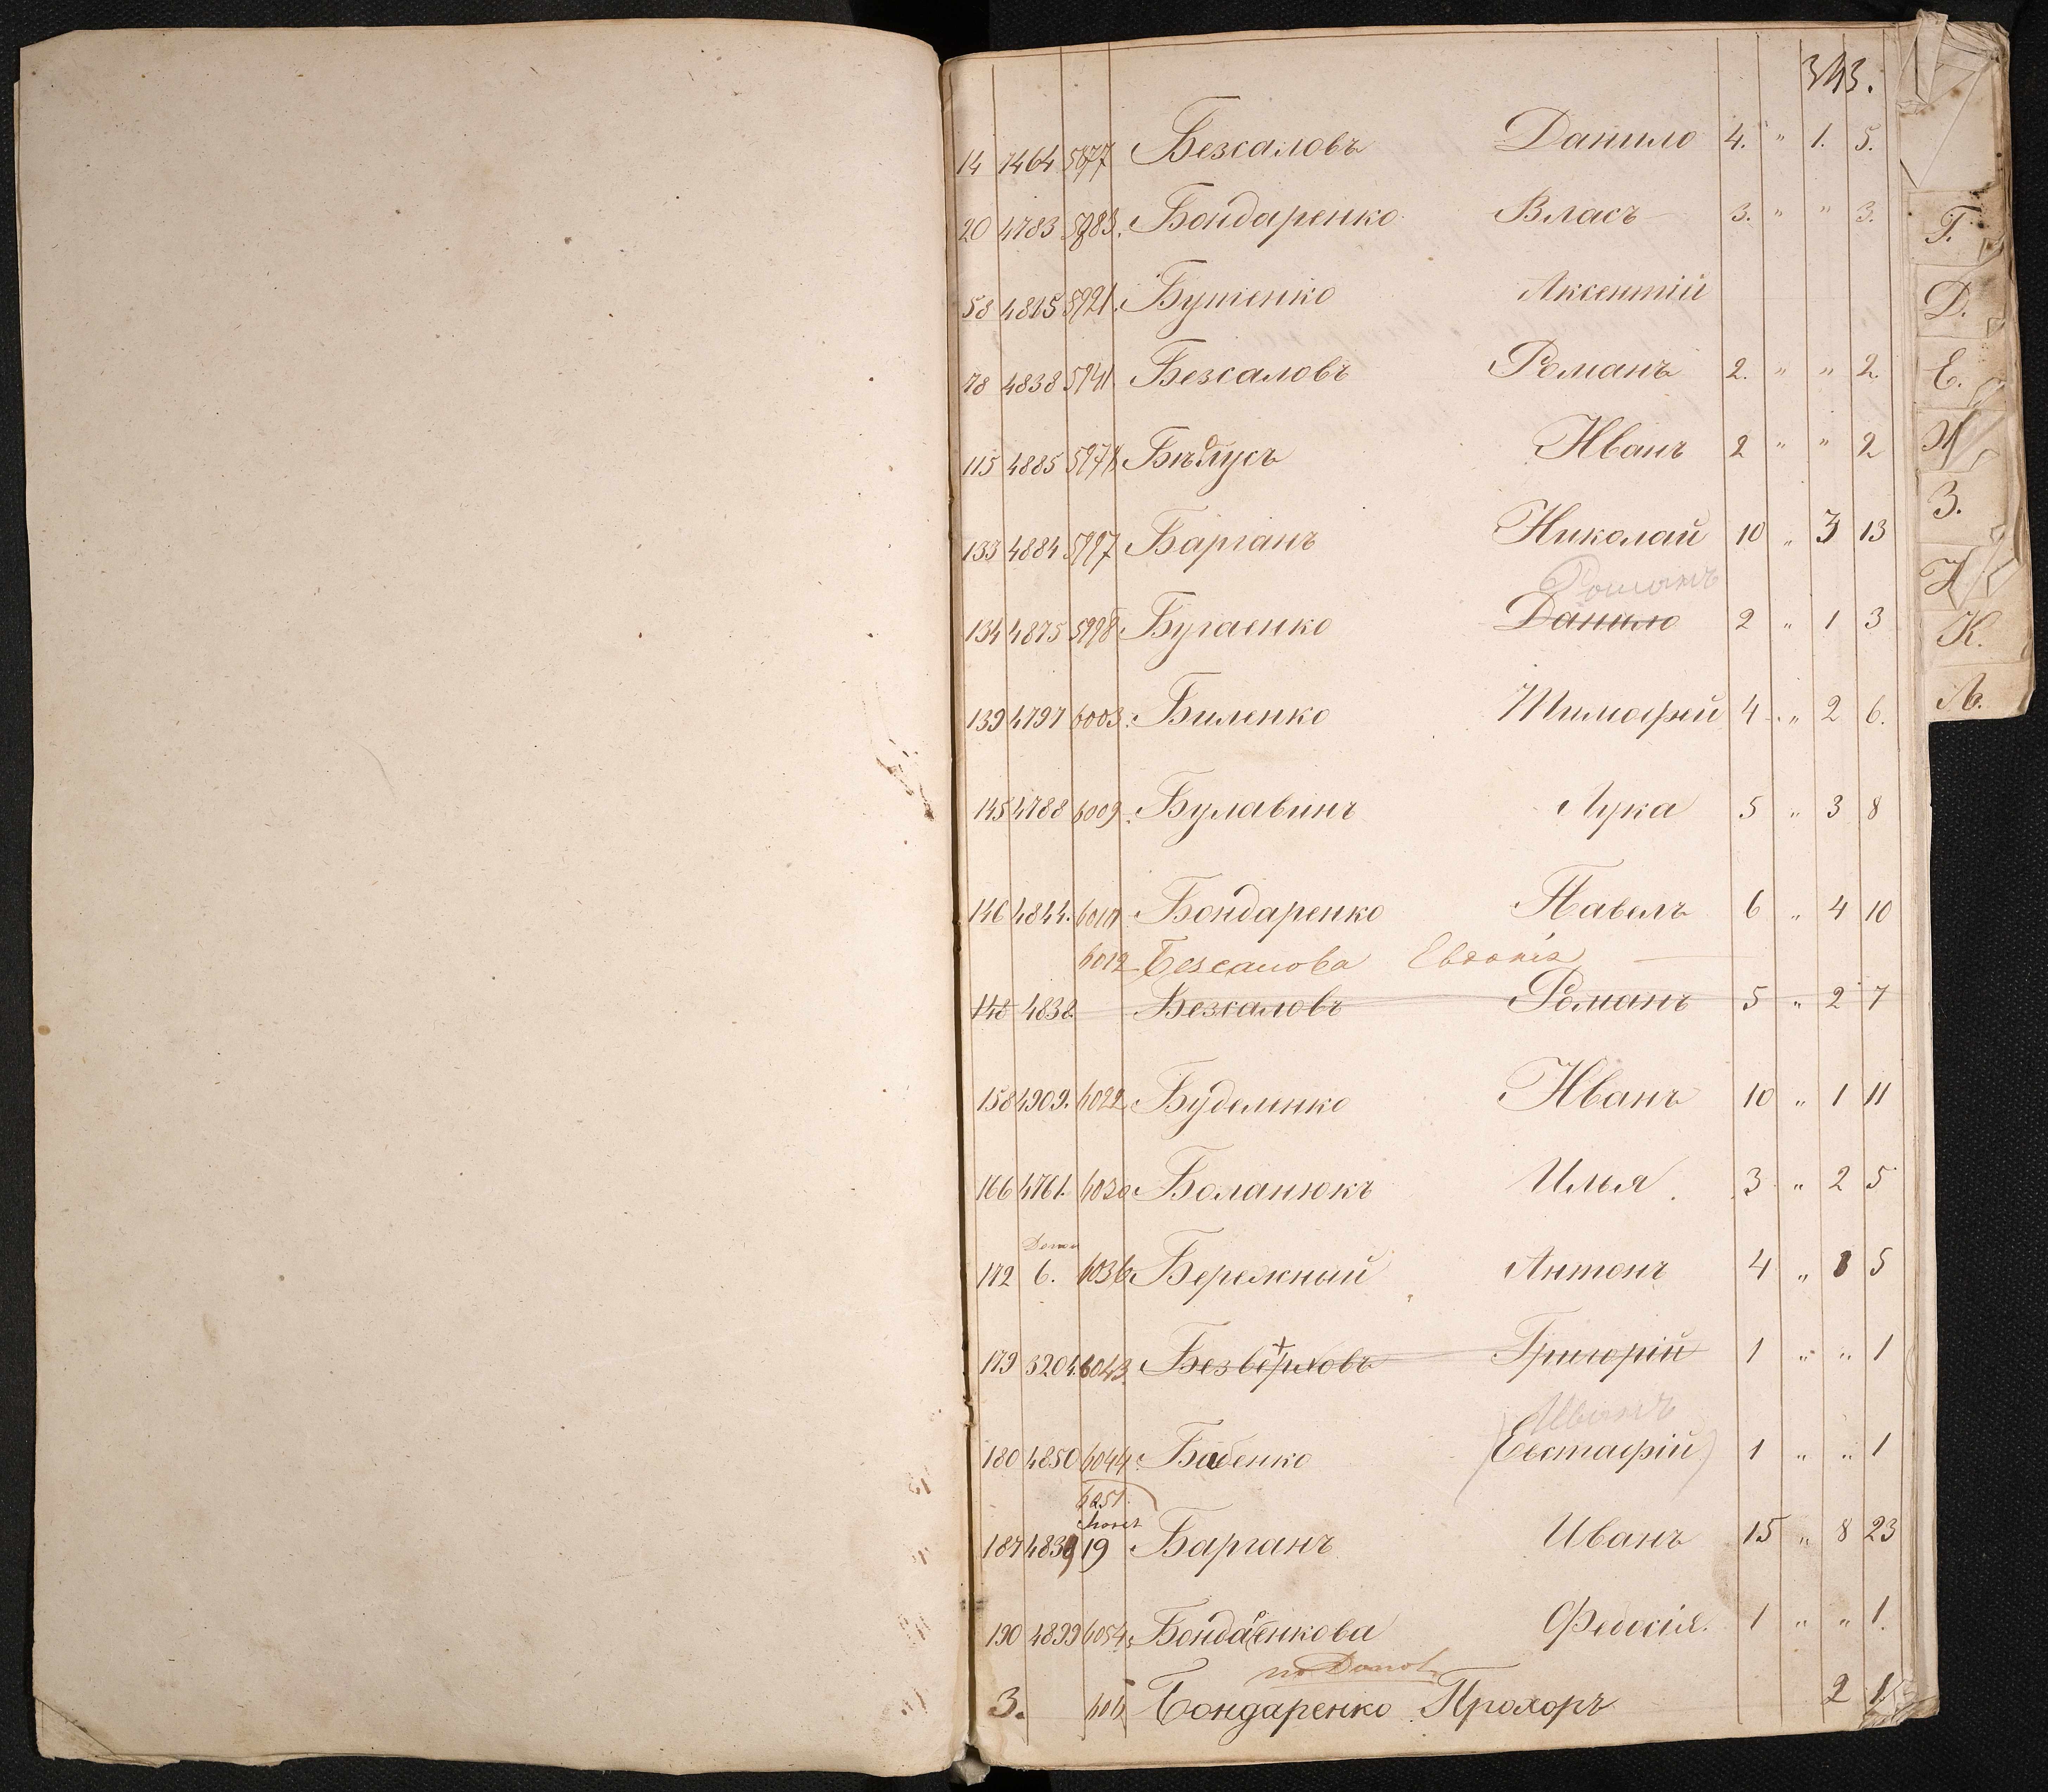 343.
14 7464 5877 Безсаловъ Данило 4. " 1. 5.
20 4783 5883. Бондаренко Власъ 3. " " 3.
58 4815 5921. Бутенко Аксентій
78 4838 5941 Безсаловъ Романъ 2. " " 2.
115 4885 Бѣлоусъ Иванъ 2 " " 2
133 4884 5997 Барганъ Николай 10 " 3 13
Романъ
134 4875 5998 Бугаенко Данило 2 " 1 3
139 4797 6003. Биленко Тимофей 4 " 2 6.
145 4788 6009. Булавинъ Лука 5 " 3 8
146 4844. Бондаренко Павелъ 6 " 4 10
6012 Безсалова
148 4838 Безсаловъ Романъ 5 " 2 7
158 4909. 6022 Буделенко Иванъ 10 " 1 11
166 4761. 6030 Боланюкъ Илья. 3 " 2 5
172 6. 6036 Бережный Антонъ 4 " 1 5
179 3204. 6043. Безверховъ Григорій 1 " " 1
Иванъ
180 4850 6044. Бабенко (Евстафій) 1 " " 1
6051.
187 4839 19 Барганъ Иванъ 15 " 8 23
190 4899 6054. Бондаренкова Федосія. 1 " " 1.
3. Бондаренко Прохоръ 2
Г.
Д.
Е.
Ж
З.
И
К.
Л.